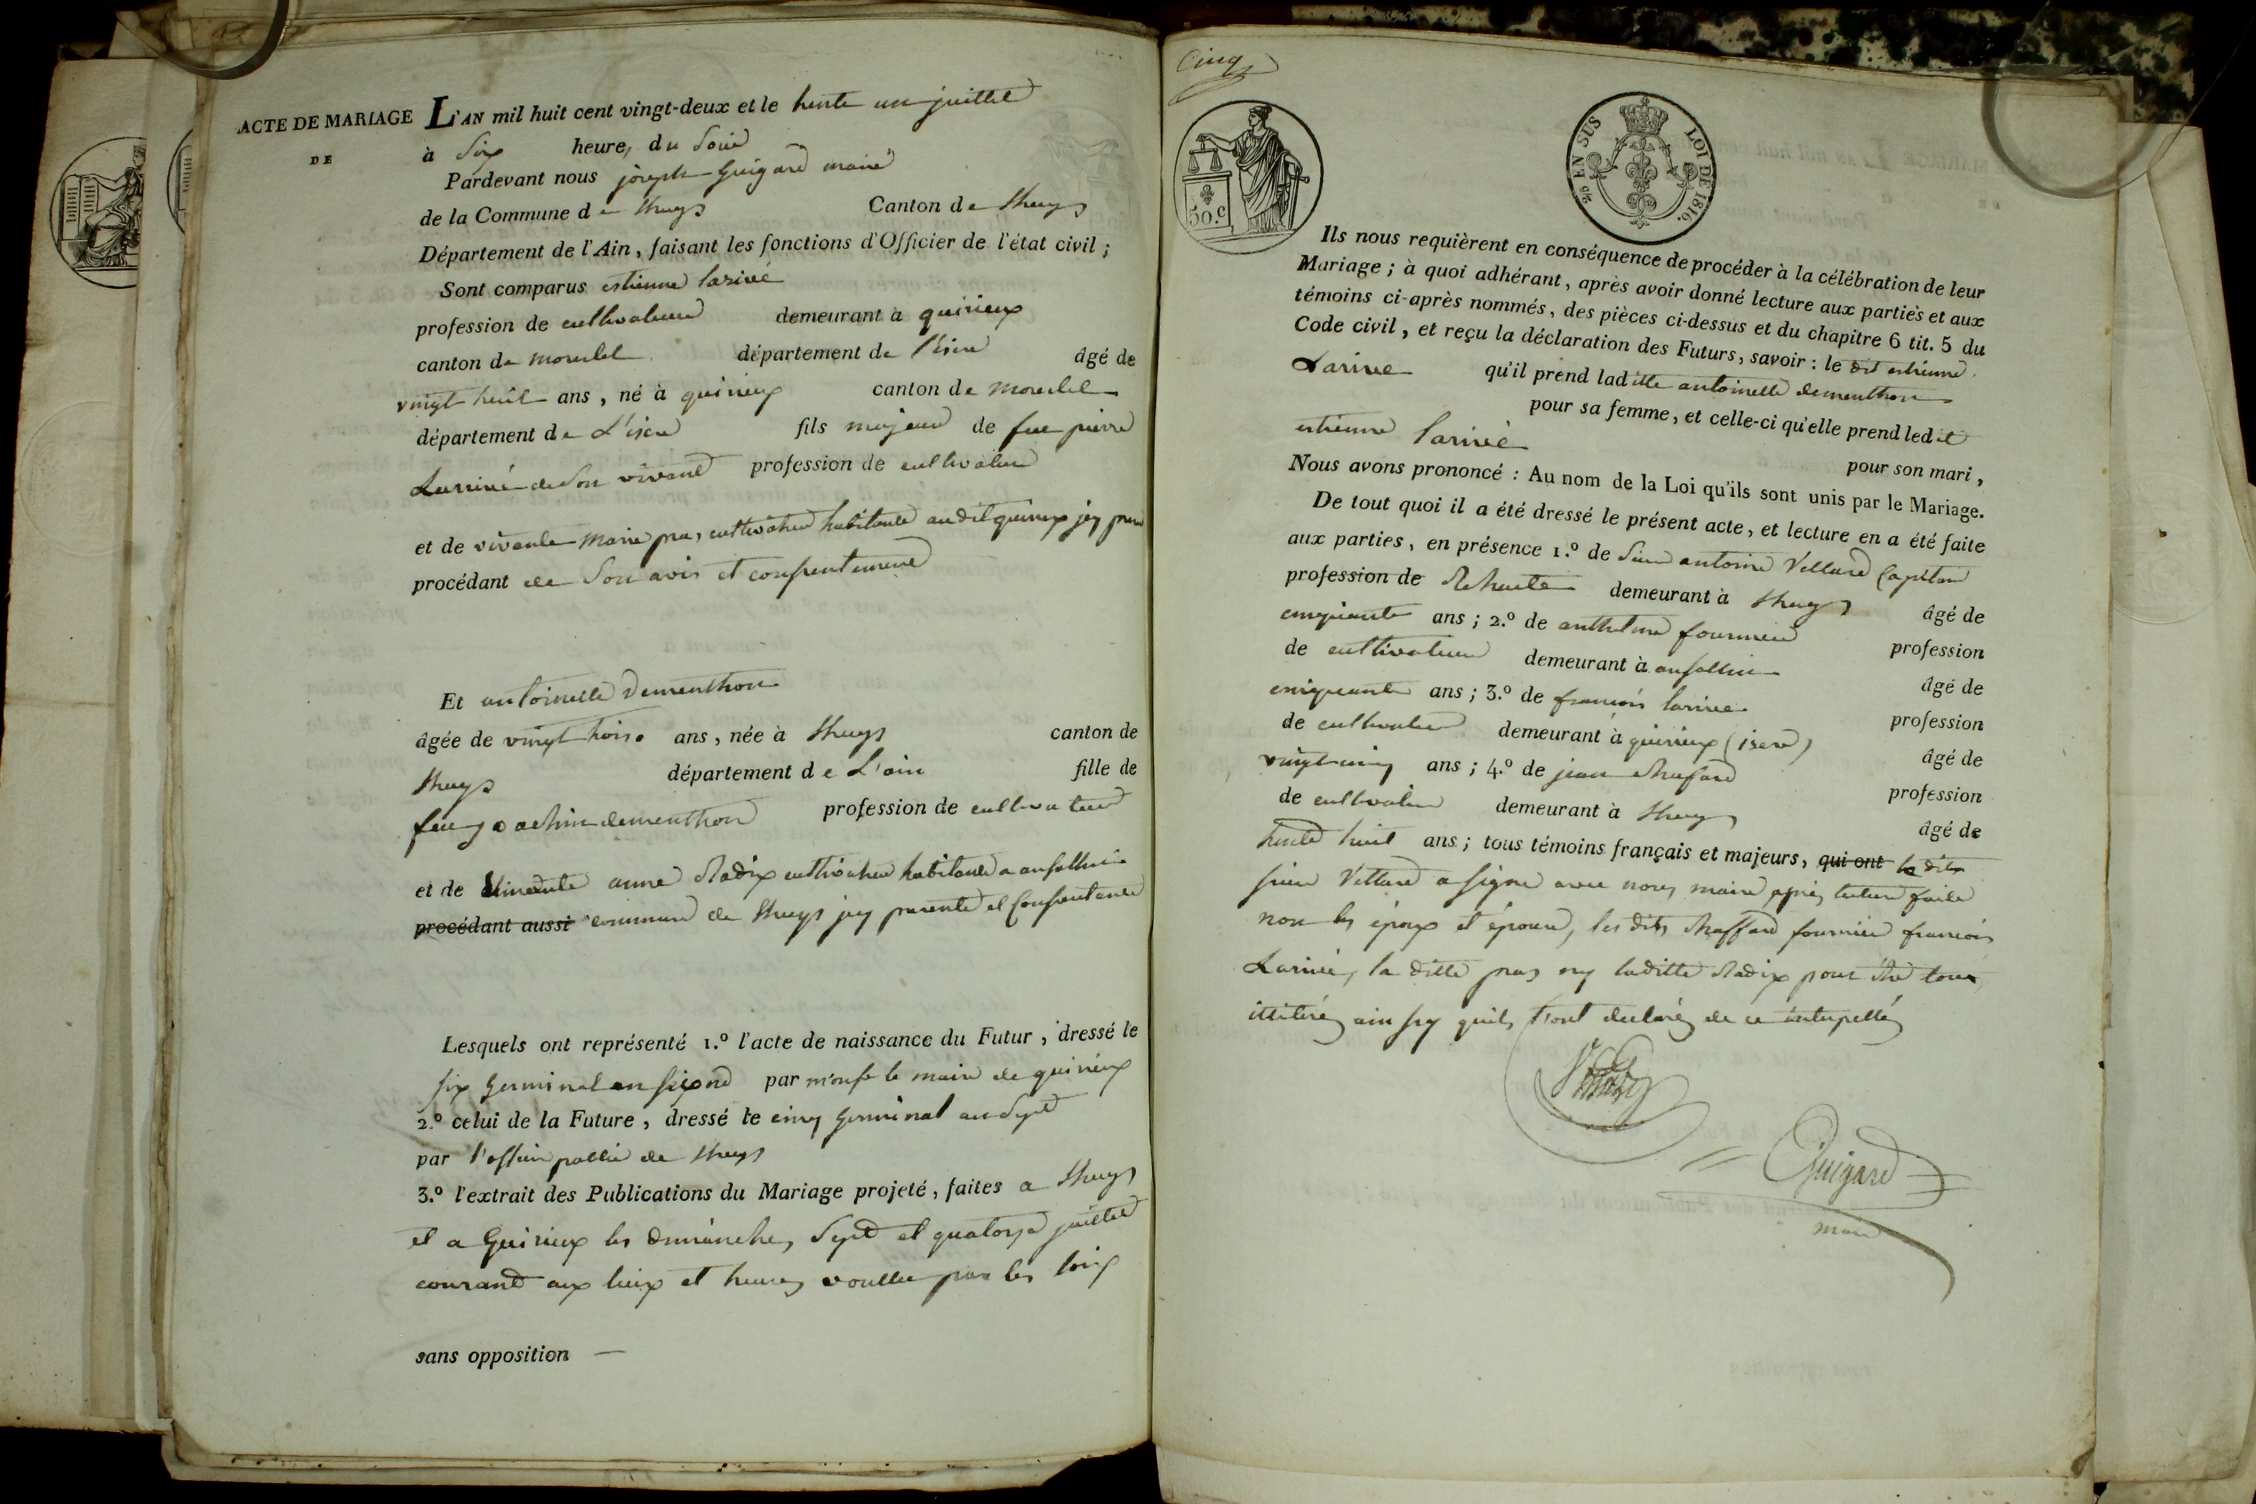 ACTE DE MARIAGE
DE
L'AN mil huit cent vingt-deux et le trente un juillet
à Six heures du Soir
Pardevant nous joseph Guigard maire
de la Commune de lhuys Canton de lhuys
Département de l'Ain, faisant les fonctions d'Officier de l'état civil ;
Sont comparus estienne larivé
profession de cultivateur demeurant à quirieux
canton de morestel département de l'isere âgé de
vingt huit ans, né à quirieux canton de morestel
département de L'isere fils majeur de feu pierre
Larrivé de Son vivant profession de cultivateur
et de vivante Marie cultivateur habitante audit quirieux
procédant de Son avis et consentement
Et antoinette dementhon
âgée de vingt trois ans, née à lhuys canton de
lhuys département de L'ain fille de
feu joachim dementhon profession de cultivateur
et de vivante anne Radix cultivateur habitante a
procédant aussi commune de lhuys icy presente et Consentante
Lesquels ont représenté 1.º l'acte de naissance du Futur, dressé le
six Germinal an par le maire de quirieux
2.º celui de la Future, dressé le cinq Germinal an Sept
par l'officier public de lhuys
3.º l'extrait des Publications du Mariage projeté, faites a lhuys
et a Quirieux les dimanches Sept et quatorze juillet
courant aux lieux et heures voullue par les loix
sans opposition —
Cinq
50.c
EN SUS LOI DE 1816.
Ils nous requièrent en conséquence de procéder à la célébration de leur
Mariage ; à quoi adhérant, après avoir donné lecture aux parties et aux
témoins ci-après nommés, des pièces ci-dessus et du chapitre 6 tit. 5 du
Code civil, et reçu la déclaration des Futurs, savoir : le dit estienne
Larivé qu'il prend laditte antoinette dementhon
pour sa femme, et celle-ci qu'elle prend ledit
estienne larivé pour son mari,
Nous avons prononcé : Au nom de la Loi qu'ils sont unis par le Mariage.
De tout quoi il a été dressé le présent acte, et lecture en a été faite
aux parties, en présence 1.º de Sieur antoine Vettard Capitaine
profession de Retraite demeurant à lhuys âgé de
cinquante ans ; 2.º de anthelme fournier profession
de cultivateur demeurant à âgé de
cinquante ans ; 3.º de francois larivee profession
de cultivateur demeurant à quirieux (isere) âgé de
vingt cinq ans ; 4.º de jean profession
de cultivateur demeurant à lhuys âgé de
trente huit ans ; tous témoins français et majeurs, qui ont le dit
sieur Vettard a signe avec nous maire après lecture faite
non les époux et épouse, les dits fournier francois
Larivé, la ditte ny laditte Radix pour être tous
illitérés ainsy quils l'ont declaré de ce interpellés
Guigard
maire